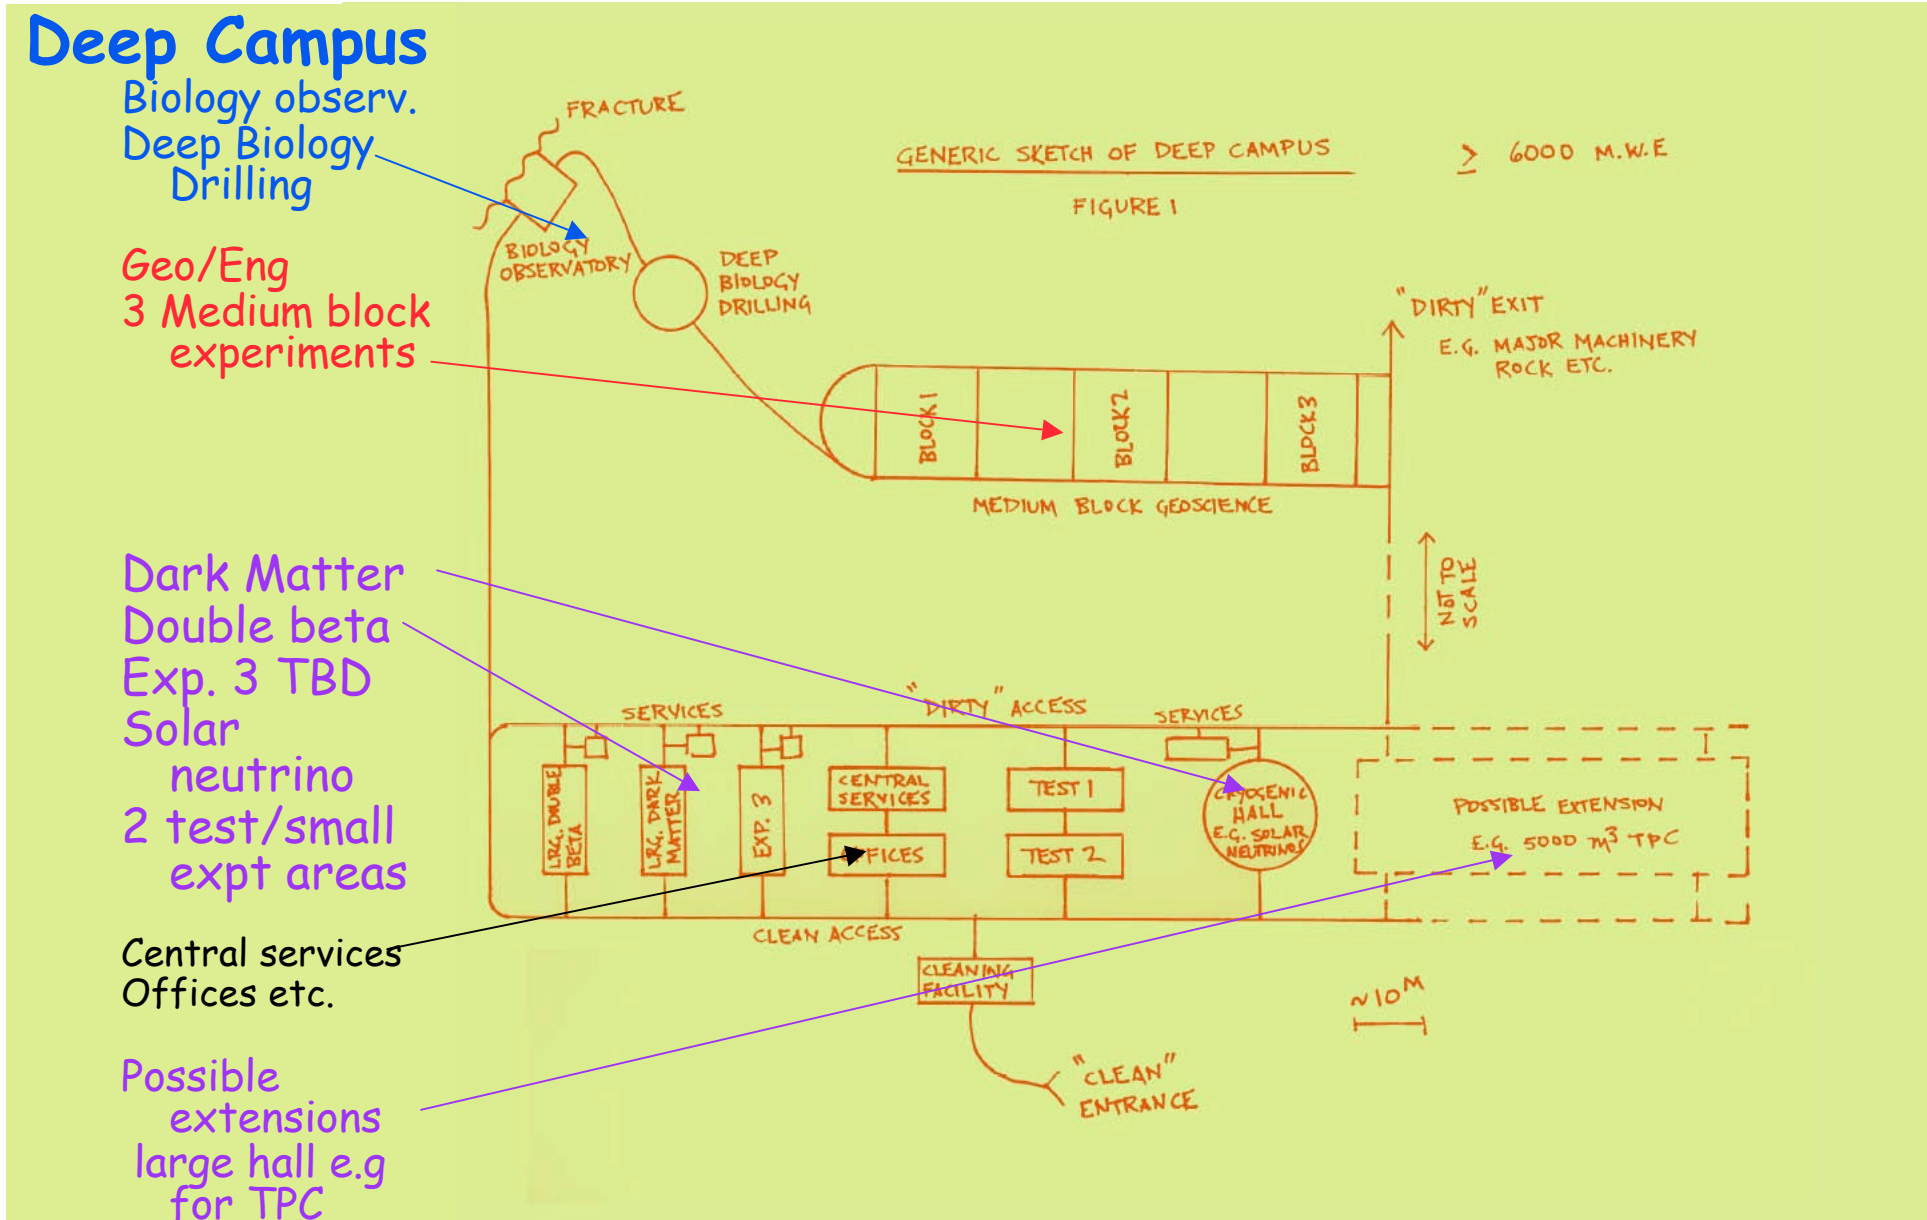 Deep Campus
Biology observ.
Deep Biology
Drilling
Geo/Eng
3 Medium block
experiments
Dark Matter
Double beta
Exp. 3 TBD
Solar
neutrino
2 test/small
expt areas
Central services
Offices etc.
Possible
extensions
large hall e.g
for TPC
FRACTURE
GENERIC SKETCH OF DEEP CAMPUS
≥ 6000 M.W.E
FIGURE 1
BIOLOGY
OBSERVATORY
DEEP
BIOLOGY
DRILLING
"DIRTY" EXIT
E.G. MAJOR MACHINERY
ROCK ETC.
BLOCK 1
BLOCK 2
BLOCK 3
MEDIUM BLOCK GEOSCIENCE
NOT TO
SCALE
SERVICES
"DIRTY" ACCESS
SERVICES
LRG. DOUBLE
BETA
LRG. DARK
MATTER
EXP. 3
CENTRAL
SERVICES
OFFICES
TEST 1
TEST 2
CRYOGENIC
HALL
E.G. SOLAR
NEUTRINOS
POSSIBLE EXTENSION
E.G. 5000 M³ TPC
CLEAN ACCESS
CLEANING
FACILITY
~10 M
"CLEAN"
ENTRANCE